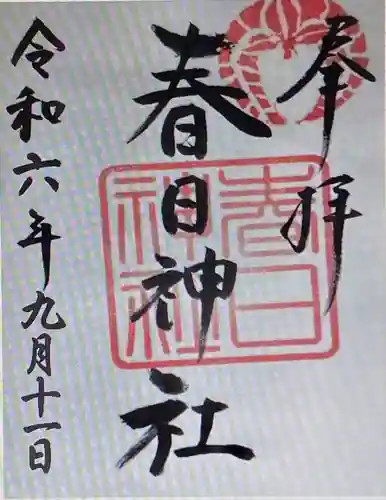 奉拝
春日神社
春日神社
令和六年九月十一日